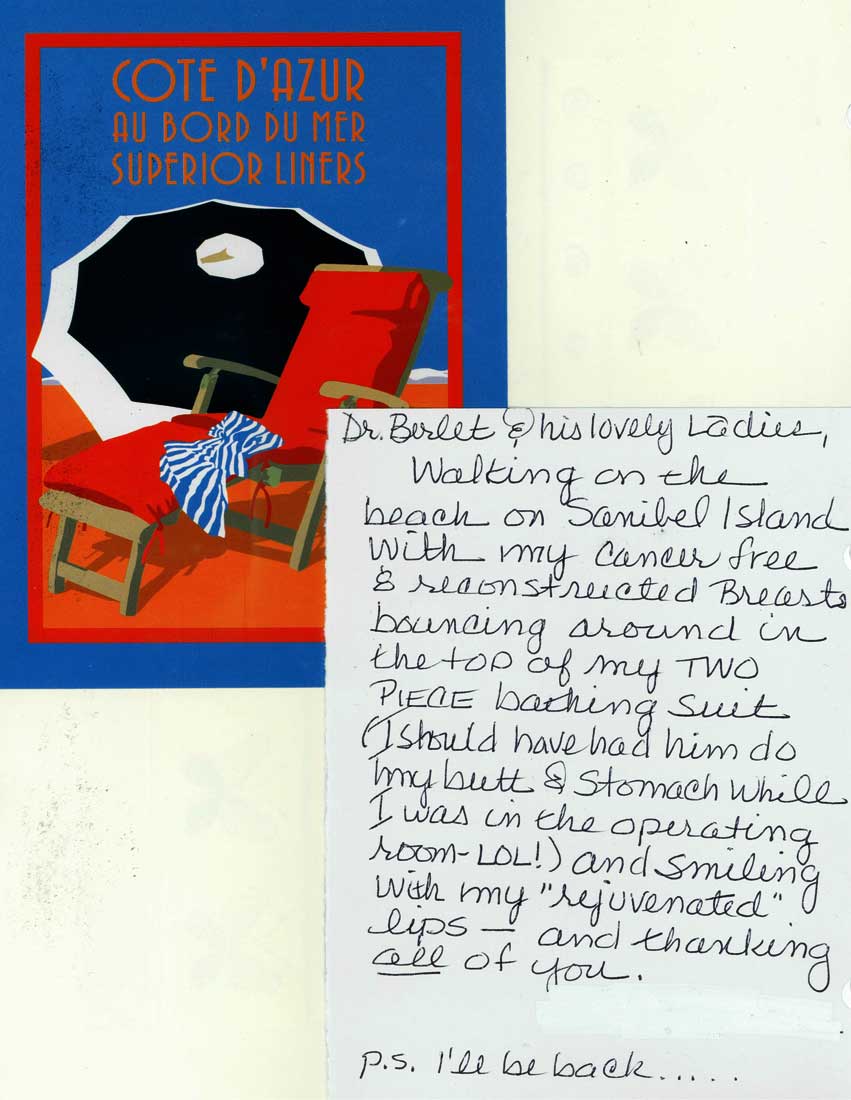 COTE D'AZUR
AU BORD DU MER
SUPERIOR LINERS
Dr. Berlet & his lovely Ladies,
Walking on the
beach on Sanibel Island
with my cancer free
& reconstructed Breasts
bouncing around in
the top of my TWO
PIECE bathing suit
(I should have had him do
my butt & stomach while
I was in the operating
room-LOL!) and smiling
with my "rejuvenated"
lips — and thanking
all of you.
p.s. I'll be back.....